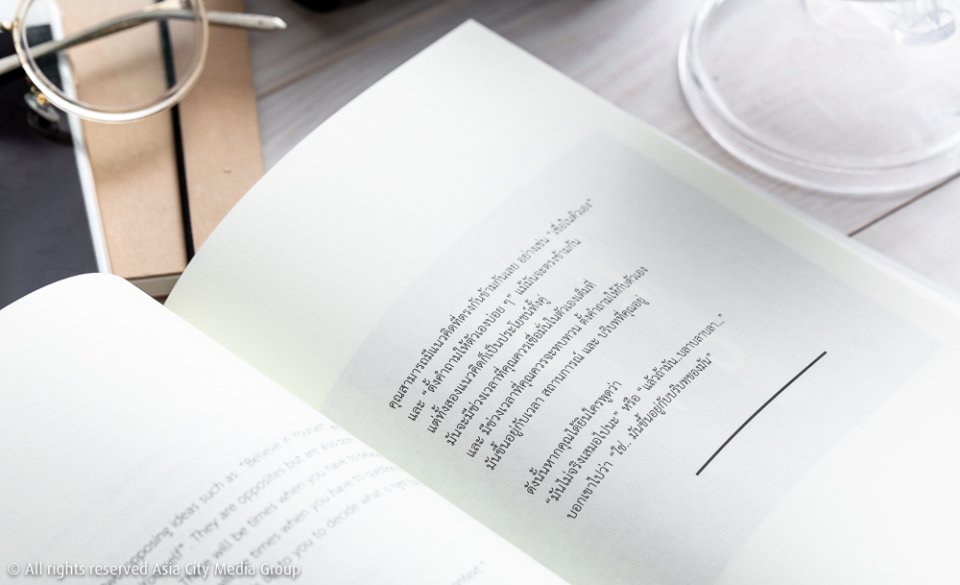 opposing ideas such as: "Believe in
. They are opposites but are
There will be times when you have to
times when you have to question
to you to decide what is
คุณสามารถมีแนวคิดที่ตรงกันข้ามกันเลย อย่างเช่น "เชื่อในตัวเอง"
และ "ตั้งคำถามให้ตัวเองบ่อย ๆ" แม้มันจะตรงข้ามกัน
แต่ทั้งสองแนวคิดก็เป็นประโยชน์ทั้งคู่
มันจะมีช่วงเวลาที่คุณควรเชื่อมั่นในตัวเองเต็มที่
และ มีช่วงเวลาที่คุณควรจะทบทวน ตั้งคำถามให้กับตัวเอง
มันขึ้นอยู่กับเวลา สถานการณ์ และ บริบทที่คุณอยู่
ดังนั้นหากคุณได้ยินใครพูดว่า
"มันไม่จริงเสมอไปนะ" หรือ "แล้วถ้ามัน...บลาบลาบลา..."
บอกเขาไปว่า "ใช่.. มันขึ้นอยู่กับบริบทของมัน"
© All rights reserved Asia City Media Group